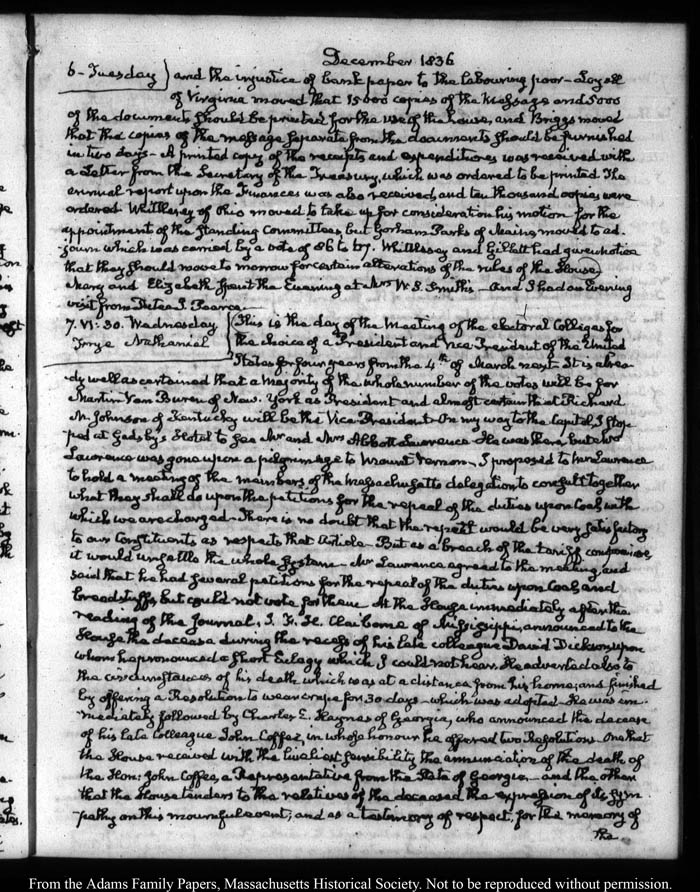 December 1836
6 - Tuesday) and the injustice of bank paper to the labouring poor - Loyall
of Virginia moved that 15000 copies of the Message and 5000
of the documents should be printed for the use of the house, and Briggs moved
that the copies of the message separate from the documents should be furnished
in two days - A printed copy of the receipts and expenditures was received with
a Letter from the Secretary of the Treasury, which was ordered to be printed The
annual report upon the Finances was also received, and ten thousand copies were
ordered Whittlesey of Ohio moved to take up for consideration his motion for the
appointment of the Standing Committees, but Gorham Parks of Maine moved to ad-
journ which was carried by a vote of 86 to 67. Whittlesey and Gillett had given notice
that they should move to morrow for certain alterations of the rules of the House,
Mary and Elizabeth spent the Evening at Mrs W. S. Smith's - And I had an Evening
visit from Dutee J. Pearce.
7. VI:30. Wednesday
Frye Nathaniel
(This is the day of the Meeting of the electoral Colleges for
the choice of a President and Vice President of the United
States for four years from the 4th of March next. It is alrea-
dy well ascertained that a Majority of the whole number of the votes will be for
Martin Van Buren of New York as President and almost certain that Richard
M. Johnson of Kentucky will be the Vice President On my way to the Capitol, I stop-
ped at Gadsby's Hotel to see Mr and Mrs Abbott Lawrence He was there, but Mrs
Lawrence was gone upon a pilgrimage to Mount Vernon - I proposed to Mr Lawrence
to hold a meeting of the members of the Massachusetts delegation to consult together
what they shall do upon the petitions for the repeal of the duties upon Coal with
which we are charged - There is no doubt that the repeal would be very satisfactory
to our Constituents as respects that Article - But as a breach of the tariff compromise,
it would unsettle the whole System - Mr Lawrence agreed to the meeting, and
said that he had several petitions for the repeal of the duties upon Coal and
breadstuffs, but could not vote for them At the House immediately after the
reading of the Journal, J. F. H. Claiborne of Mississippi, announced to the
House the decease during the recess of his late colleague David Dickson, upon
whom he pronounced a short Eulogy which I could not hear. He adverted also to
the circumstances of his death which was at a distance from his home; and finished
by offering a Resolution to wear crape for 30 days - which was adopted - He was im-
mediately followed by Charles E. Haynes of Georgia, who announced the decease
of his late Colleague John Coffee, in whose honour he offered two Resolutions One that
the House received with the liveliest sensibility the annunciation of the death of
the Hon: John Coffee, a Representative from the State of Georgia - and the other
that the House tenders to the relatives of the deceased the expression of its sym-
pathy on this mournful event; and as a testimony of respect, for the memory of
the
From the Adams Family Papers, Massachusetts Historical Society. Not to be reproduced without permission.